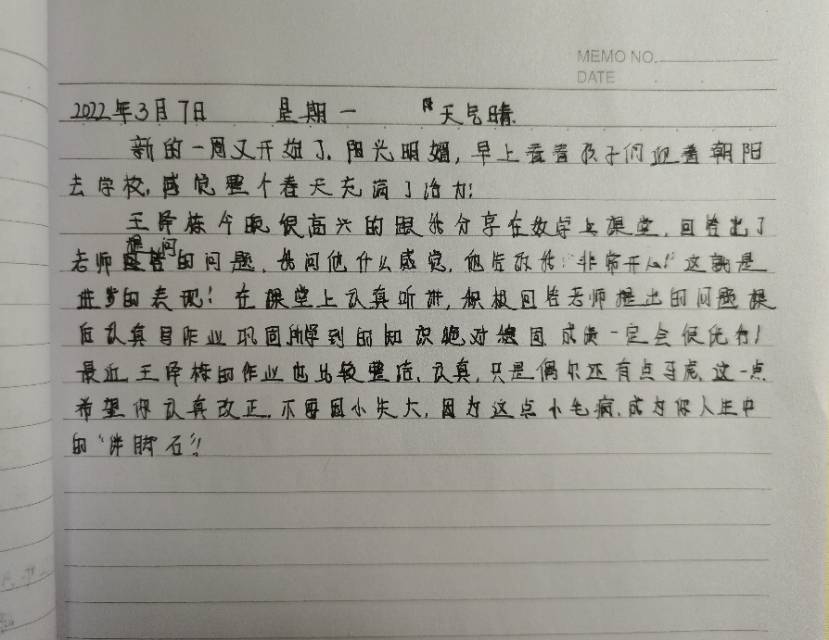 MEMO NO.
DATE
2022年3月7日 星期一 天气晴
新的一周又开始了，阳光明媚，早上看着孩子们迎着朝阳
去学校，感觉整个春天充满了活力！
王泽栋今晚很高兴的跟我分享在数学上课堂，回答出了
提问
老师的问题，我问他什么感觉，他告诉我："非常开心！"这就是
进步的表现！在课堂上认真听讲，积极回答老师提出的问题课
后认真写作业巩固所学到的知识绝对稳固成绩一定会很优秀！
最近王泽栋的作业也比较整洁、认真，只是偶尔还有点马虎，这一点
希望你认真改正，不要因小失大，因为这点小毛病，成为你人生中
的"绊脚石"！